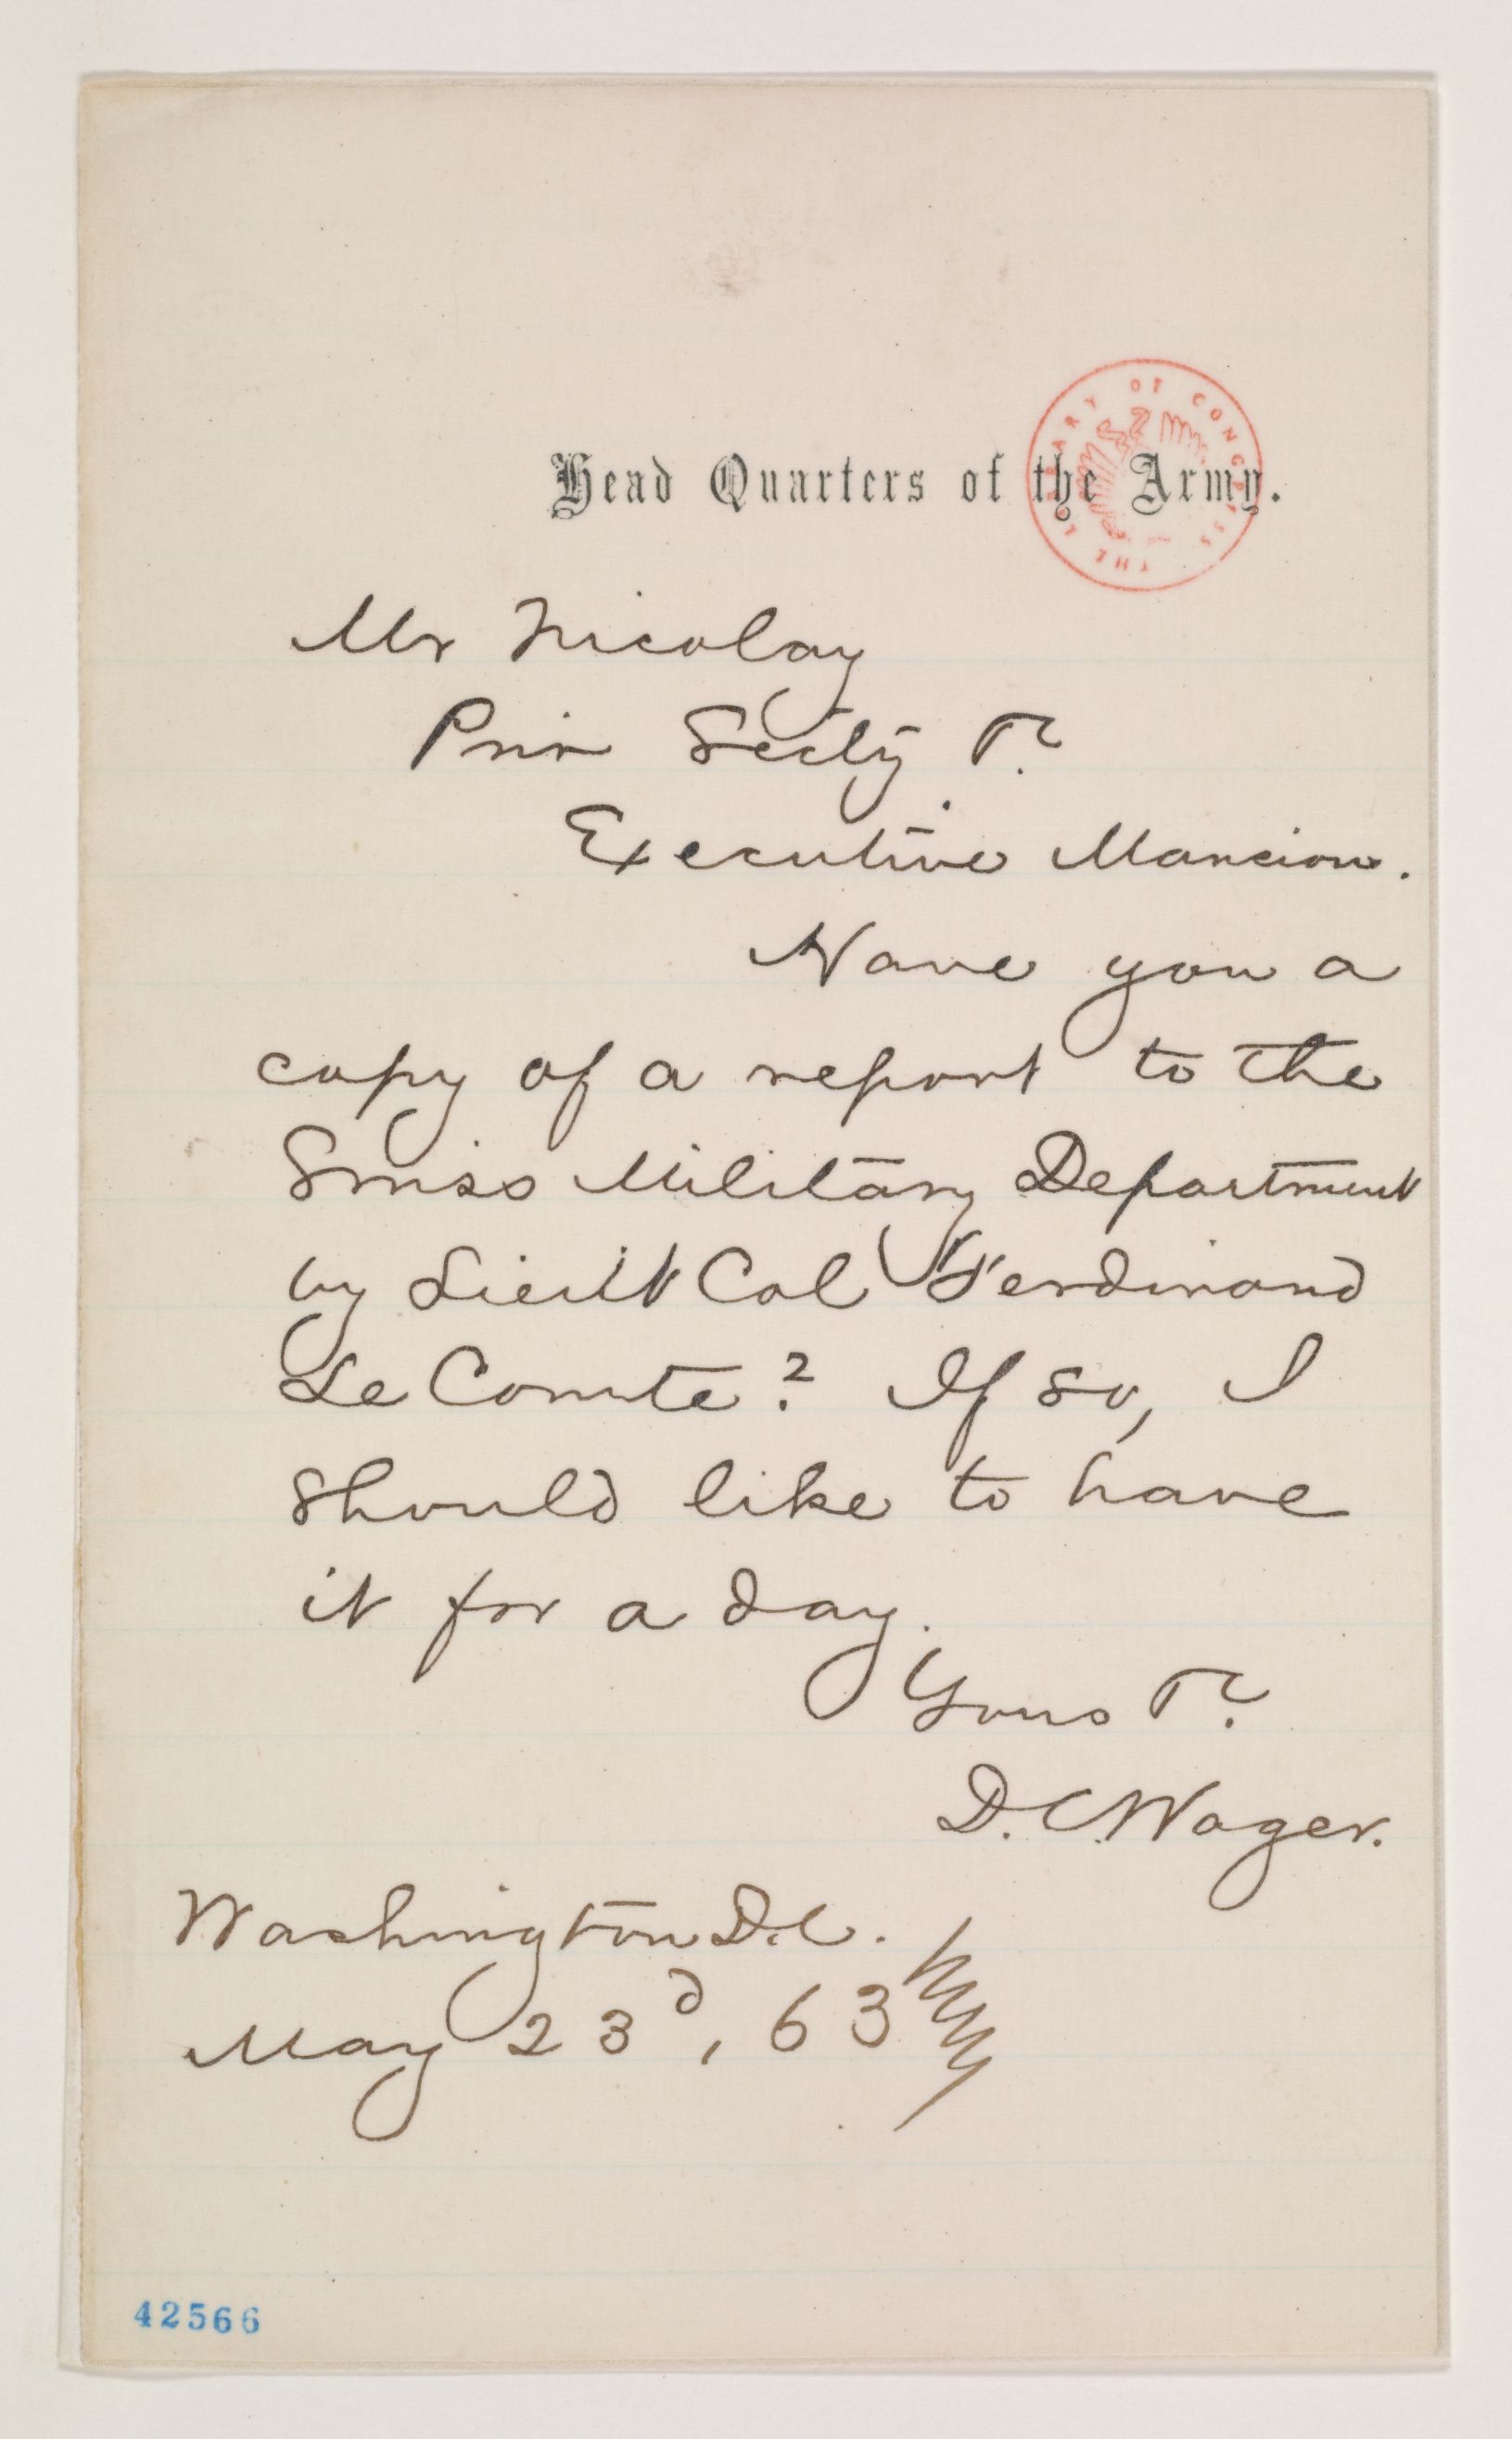 Head Quarters of the Army.
THE LIBRARY OF CONGRESS
Mr Nicolay
Priv Secty &c.
Executive Mansion.
Have you a
copy of a report to the
Swiss Military Department
by Lieut Col Ferdinand
Le Comte? If so, I
should like to have
it for a day.
Yours &c.
D. C. Wager.
Washington D.C.
May 23d, 63
42566